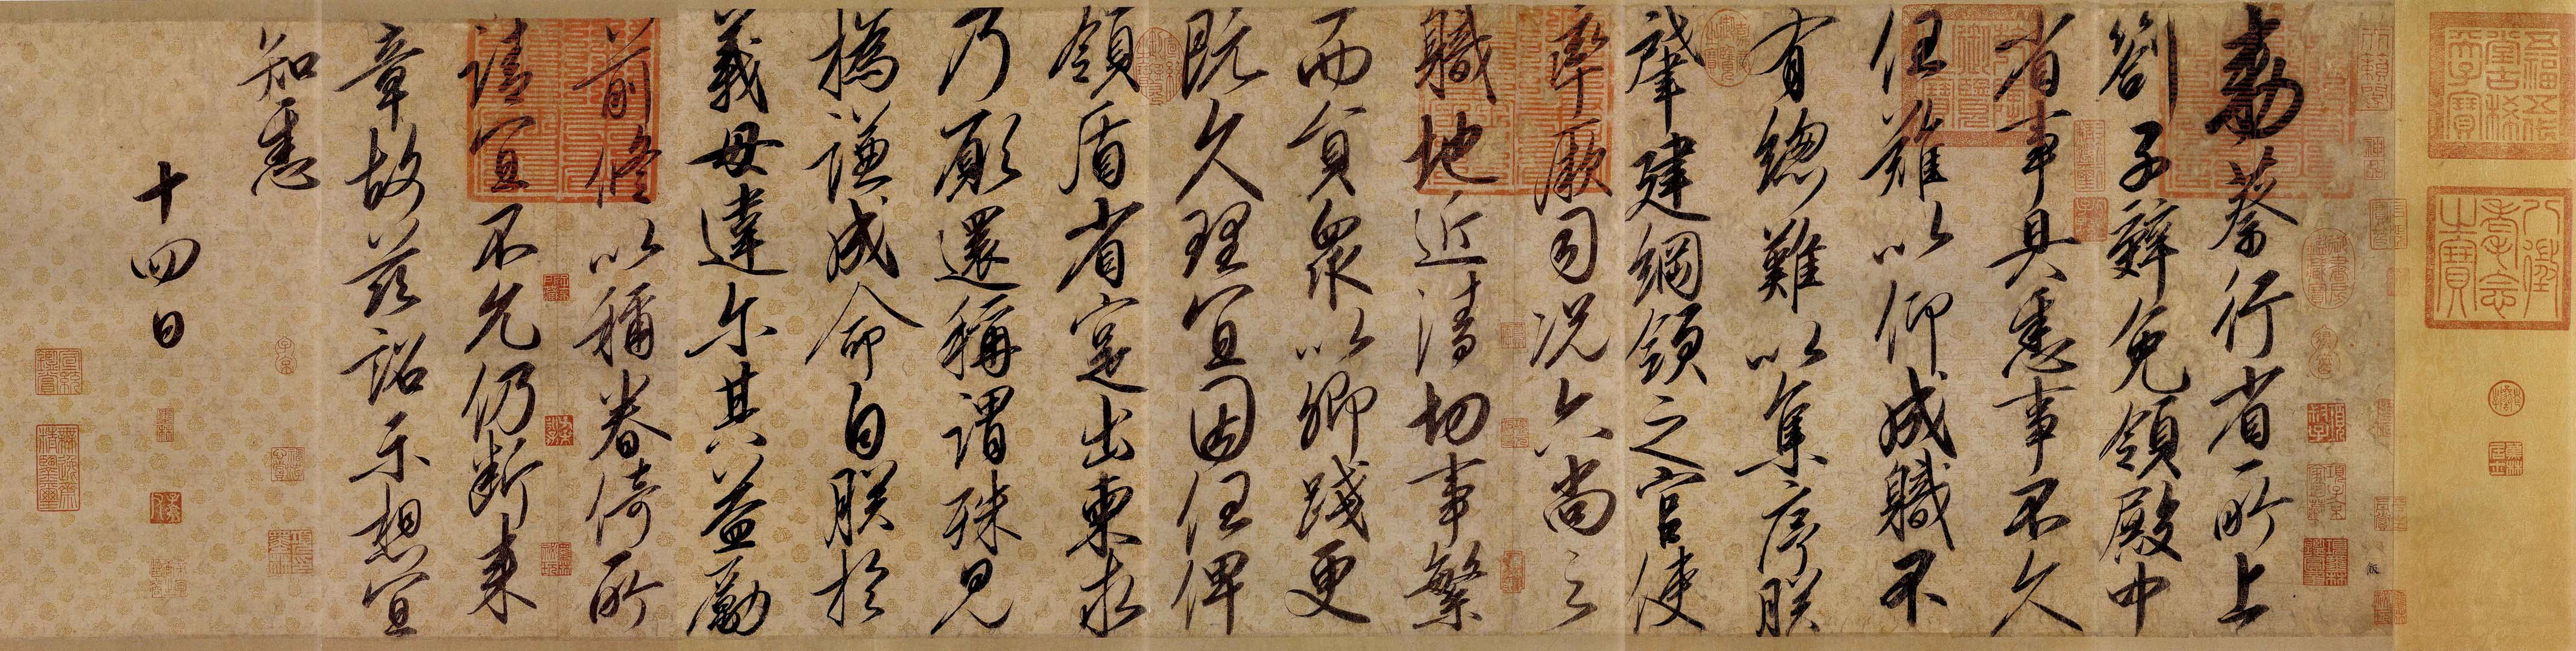 五福五代堂古稀天子寶
八徵耄念之寶
勅蔡行省所上
劄子辭免領殿中
省事具悉事不久
任難以仰成職不
有總難以集序朕
肇建綱領之官使
率厥司況六尚之
職地近清切事繁
而員衆以卿踐更
既久理宜因任俾
領盾省寔出柬求
乃願還稱謂殊見
撝謙成命自朕於
義毋違尔其益勵
前修以稱眷倚所
請宜不允仍斷來
章故茲詔示想宜
知悉
十四日